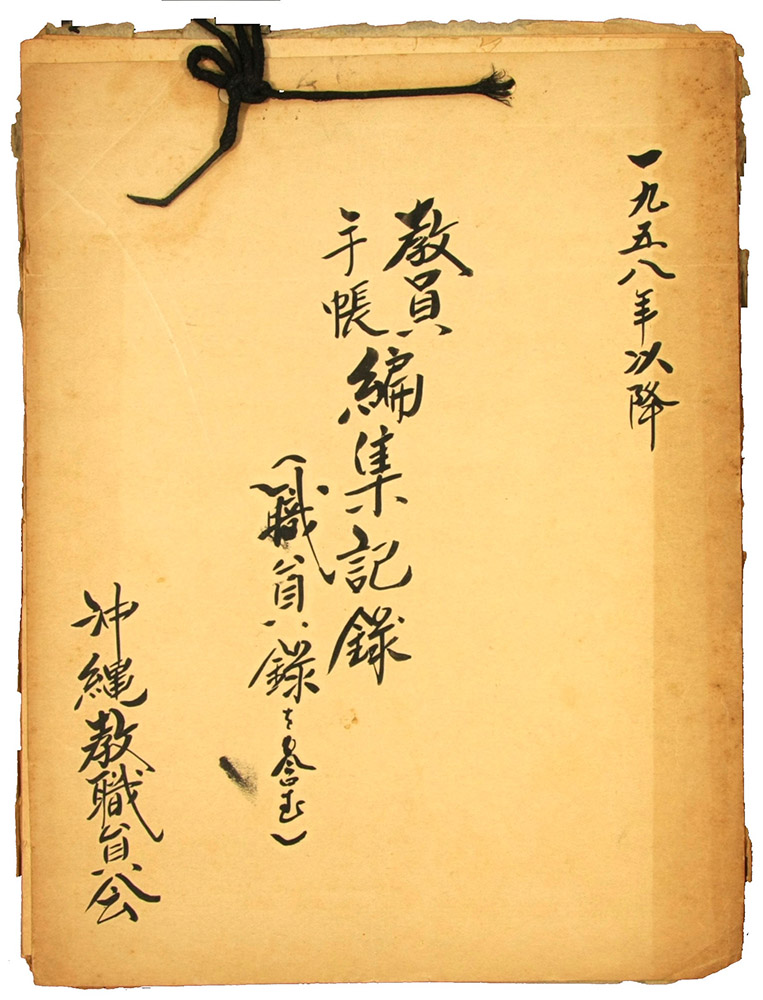 一九五八年以降
教員
手帳
編集記録
（職員録を含む）
沖縄教職員会